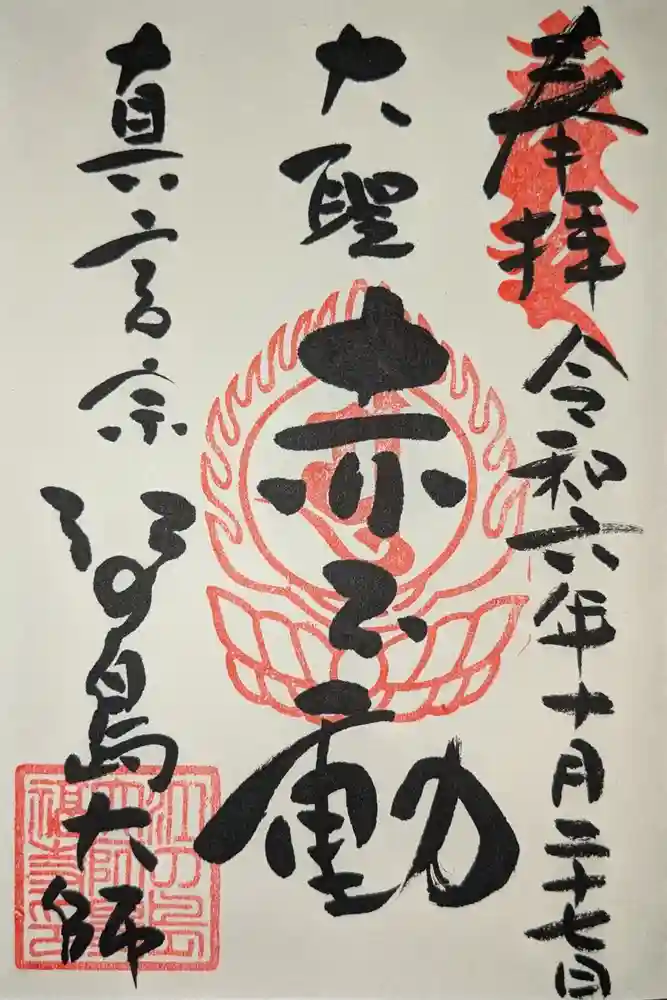 奉拝
令和六年十月二十七日
大聖
赤不動
真言宗
江の島大師